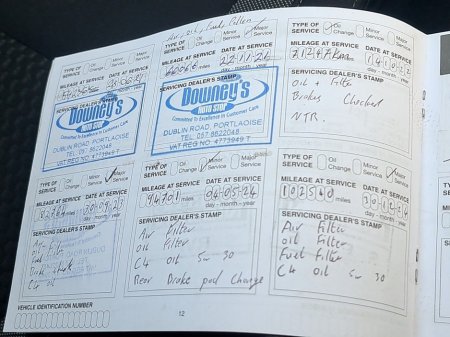 Air, Oil, Fuel Filters
TYPE OF SERVICE Oil Change Minor Service Major Service
MILEAGE AT SERVICE DATE AT SERVICE
miles day - month - year
SERVICING DEALER'S STAMP
Downey's
AUTO STOP
Committed to Excellence in Customer Care
DUBLIN ROAD PORTLAOISE
TEL: 057 8622048
VAT REG NO: 4773949 T
TYPE OF SERVICE Oil Change Minor Service Major Service
MILEAGE AT SERVICE DATE AT SERVICE
miles 22-11-21
day - month - year
SERVICING DEALER'S STAMP
Downey's
AUTO STOP
Committed to Excellence in Customer Care
DUBLIN ROAD PORTLAOISE
TEL: 057 8622048
VAT REG NO: 4773949 T
TYPE OF SERVICE Oil Change Minor Service Major Service
MILEAGE AT SERVICE DATE AT SERVICE
day - month - year
SERVICING DEALER'S STAMP
Oil + Filter
Brakes Checked
NTR.
TYPE OF SERVICE Oil Change Minor Service Major Service
MILEAGE AT SERVICE DATE AT SERVICE
miles 30-09-23
day - month - year
SERVICING DEALER'S STAMP
Air Filter
Fuel Filter
C4 oil
TYPE OF SERVICE Oil Change Minor Service Major Service
MILEAGE AT SERVICE DATE AT SERVICE
94701 miles 04-05-24
day - month - year
SERVICING DEALER'S STAMP
Air Filter
oil Filter
C4 oil 5w 30
Rear Brake pad Change
TYPE OF SERVICE Oil Change Minor Service Major Service
MILEAGE AT SERVICE DATE AT SERVICE
102540 miles 30-11-24
day - month - year
SERVICING DEALER'S STAMP
Air Filter
oil Filter
Fuel Filter
C4 oil 5w 30
VEHICLE IDENTIFICATION NUMBER
12